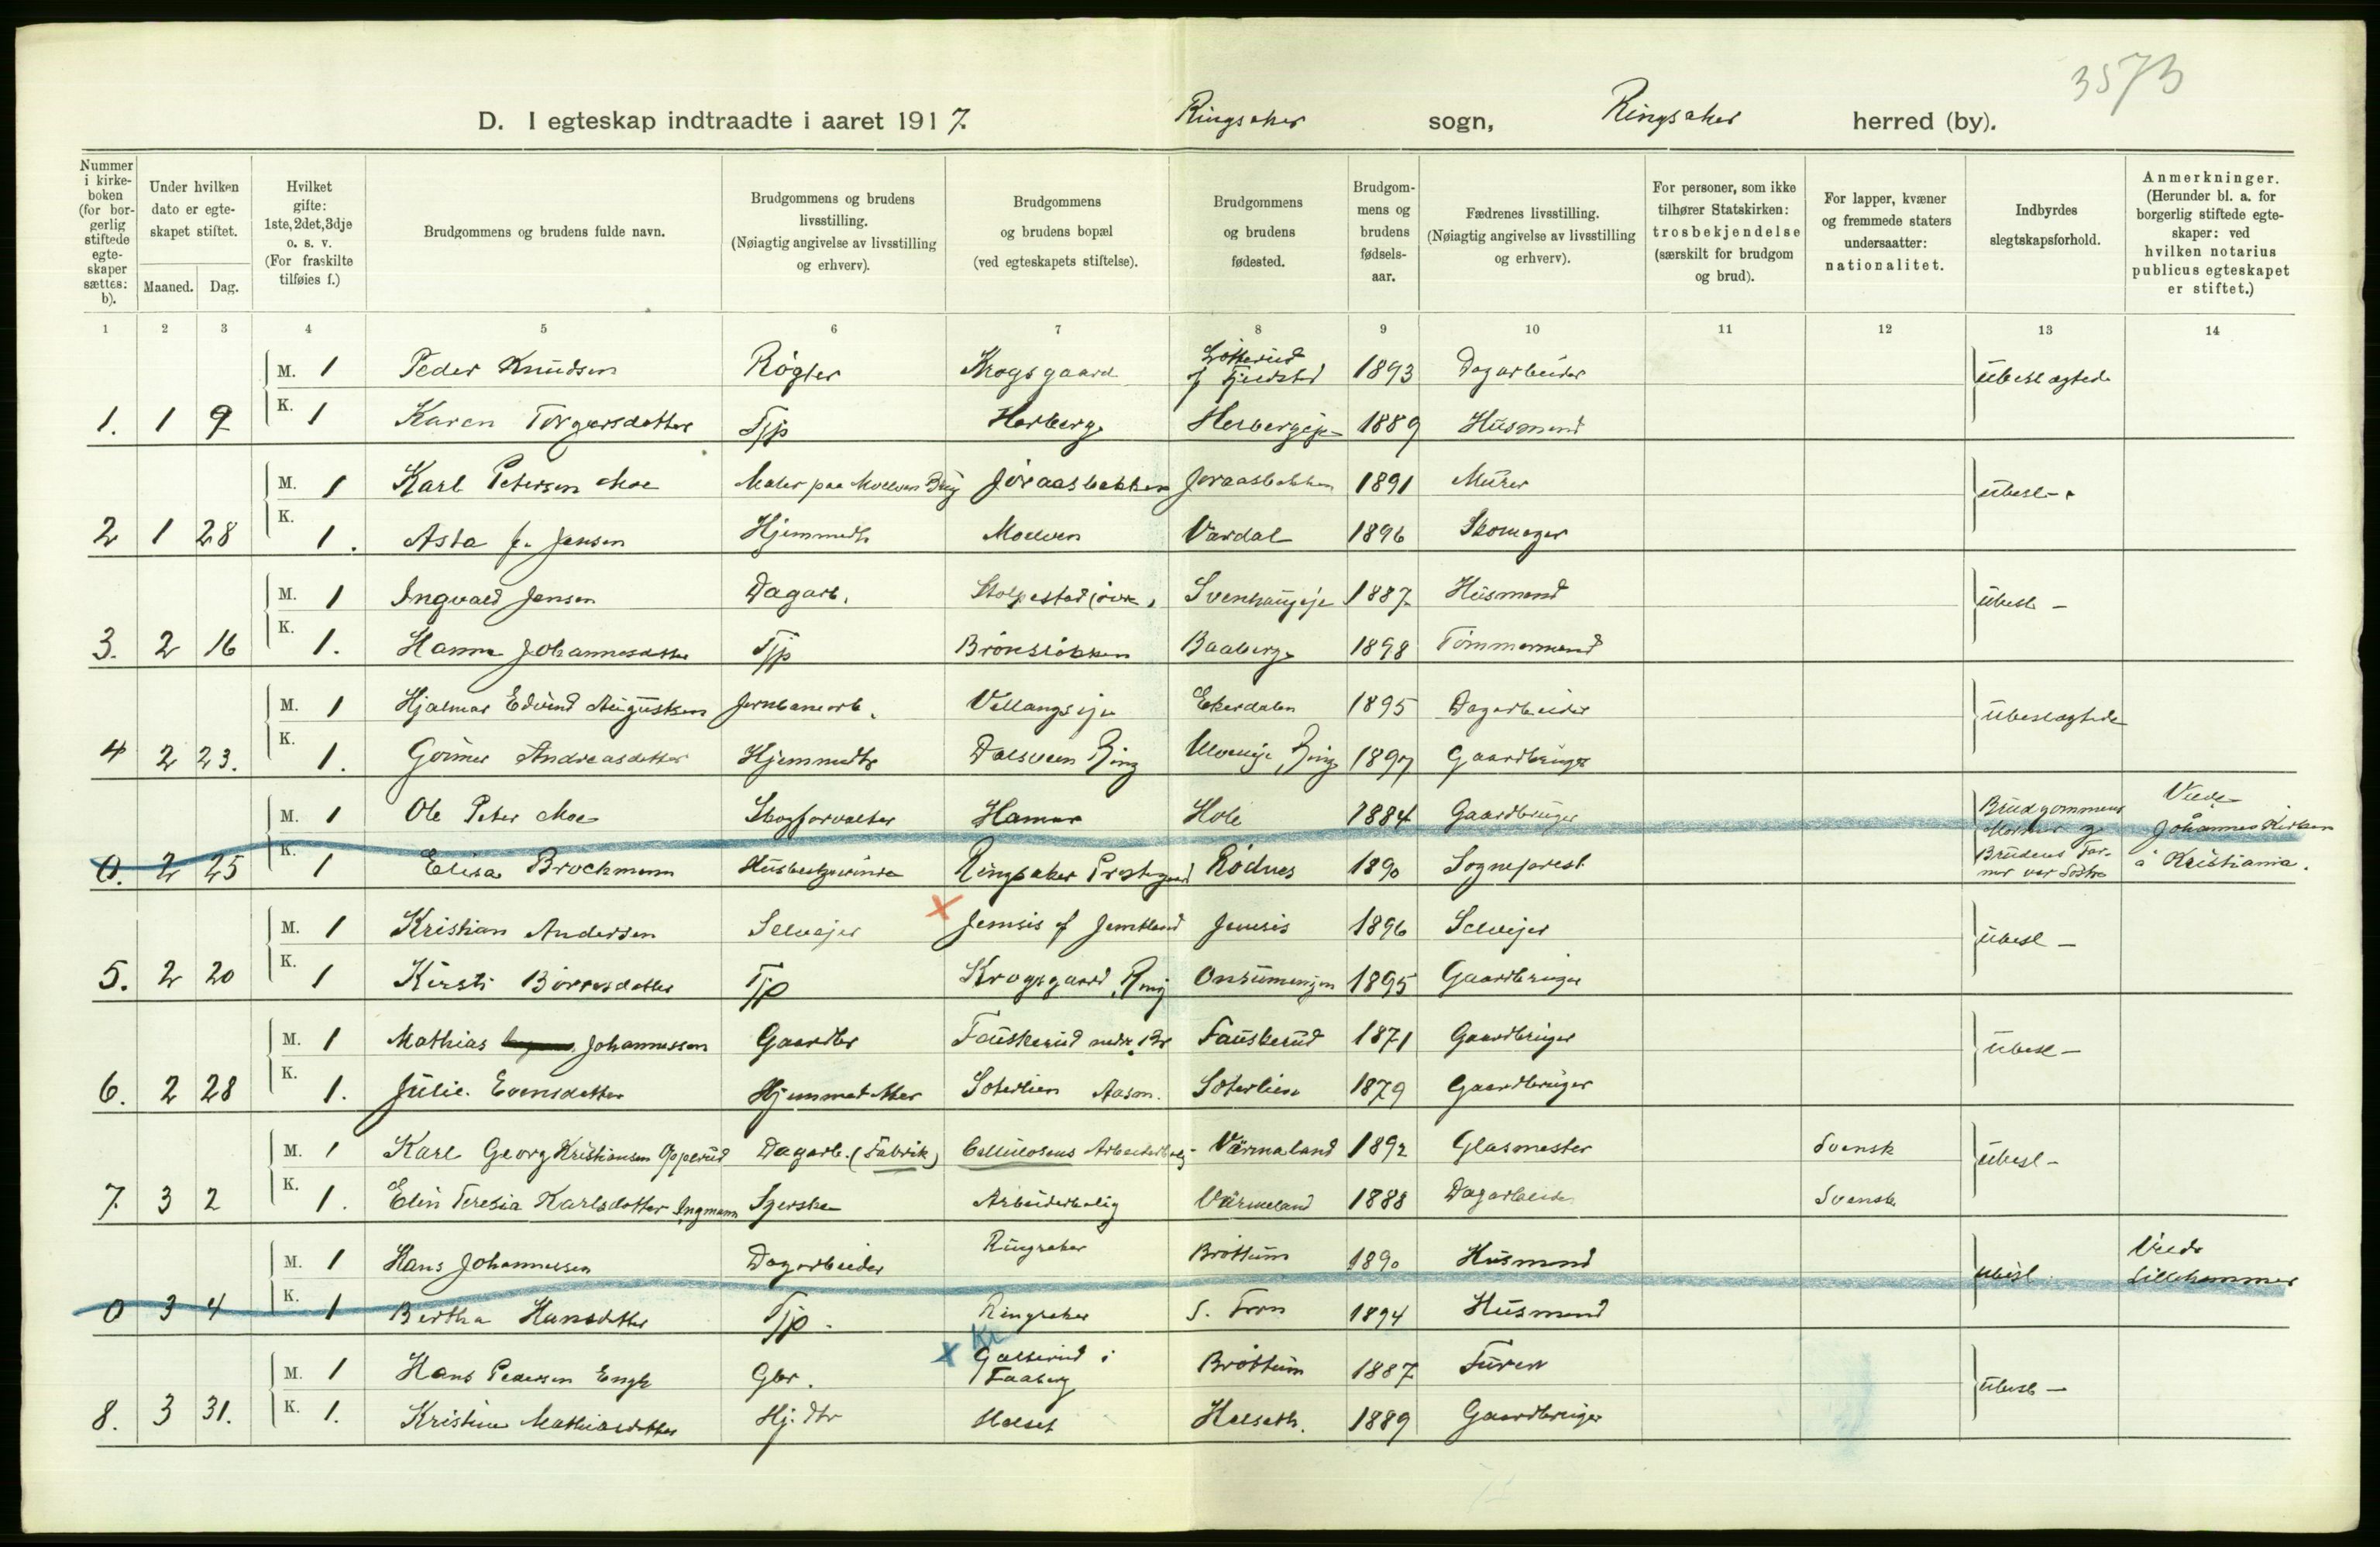 3573
D. I egteskap indtraadte i aaret 1917. Ringsaker sogn, Ringsaker herred (by).
Nummer i kirke-boken (for bor-gerlig stiftede egte-skaper sættes: b).
Under hvilken dato er egte-skapet stiftet.
Maaned. Dag.
Hvilket gifte: 1ste, 2det, 3dje o. s. v. (For fraskilte tilføies f.)
Brudgommens og brudens fulde navn.
Brudgommens og brudens livsstilling. (Nøiagtig angivelse av livsstilling og erhverv).
Brudgommens og brudens bopæl (ved egteskapets stiftelse).
Brudgommens og brudens fødested.
Brudgom-mens og brudens fødsels-aar.
Fædrenes livsstilling. (Nøiagtig angivelse av livsstilling og erhverv).
For personer, som ikke tilhører Statskirken: trosbekjendelse (særskilt for brudgom og brud).
For lapper, kvæner og fremmede staters undersaatter: nationalitet.
Indbyrdes slegtskapsforhold.
Anmerkninger. (Herunder bl. a. for borgerlig stiftede egte-skaper: ved hvilken notarius publicus egteskapet er stiftet.)
1 2 3 4 5 6 7 8 9 10 11 12 13 14
M. 1 Peder Knudsen Røgter Krogsgaard 1893 Dagarbeider ubeslægtede
1. 1 9 K. 1 Karen Torgersdatter Tjp Herberg 1889 Husmand
M. 1 Karl Petersen Moe Maler paa Moelven Brug Joraasbakken Joraasbakken 1891 Murer ubesl-
2 1 28 K. 1. Asta J. Jensen Hjemmedtr Moelven Vardal 1896 Skomager
M. 1 Ingvald Jensen Dagarb. Stolpestad 1887 Husmand ubesl -
3. 2 16 K. 1. Hanna Johannesdatter Tjp Baaberg 1898 Tømmermand
M. 1 Hjalmar Edvind Augustsen Jernbanearb. Vellangseje Ekerdalen 1895 Dagarbeider ubeslægtede
4 2 23. K. 1. Andreasdatter Hjemmedtr Dalsveen Ring 1897 Gaardbruger
M. 1 Ole Peter Moe Skogforvalter Hamar Hole 1884 Gaardbruger Brudgommens
0. 2 25 K. 1 Elisa Brochmann Husbestyrerinde Ringsaker Prestegaard Rødnes 1890 Sogneprest Brudens Kristiania.
M. 1 Kristian Andersen Selvejer x Jemsis Jemtland Jemsis 1896 Selvejer ubesl -
5. 2 20 K. 1 Kirsti Børresdatter Tjp Krogsgaard, Ring 1895 Gaardbruger
M. 1 Mathias Johannessen Gaardbr Fauskerud Fauskerud 1871 Gaardbruger ubesl -
6. 2 28 K. 1. Julie Evensdatter Hjemmedatter Soterlien Aasm. Soterlien 1879 Gaardbruger
M. 1 Karl Georg Kristiansen Opperud Dagarb. (Fabrik) Cellulosens Arbeiderbolig Värmaland 1892 Glasmester Svensk ubesl -
7. 3 2 K. 1. Elin Teresia Karlsdotter Ingmann Syerske Arbeiderbolig Värmeland 1888 Dagarbeider Svensk
M. 1 Hans Johannessen Dagarbeider Ringsaker Brøttum 1890 Husmand ubesl. Viede Lillehammer
0 3 4 K. 1 Bertha Hansdatter Tjp. Ringsaker S. Fron 1894 Husmand
M. 1 Hans Pedersen Engh Gbr. x Kr Galterud i Faaberg Brøttum 1887 ubesl -
8. 3 31. K. 1. Kristine Mathiasdatter Hj. dtr Helset Helseth. 1889 Gaardbruger